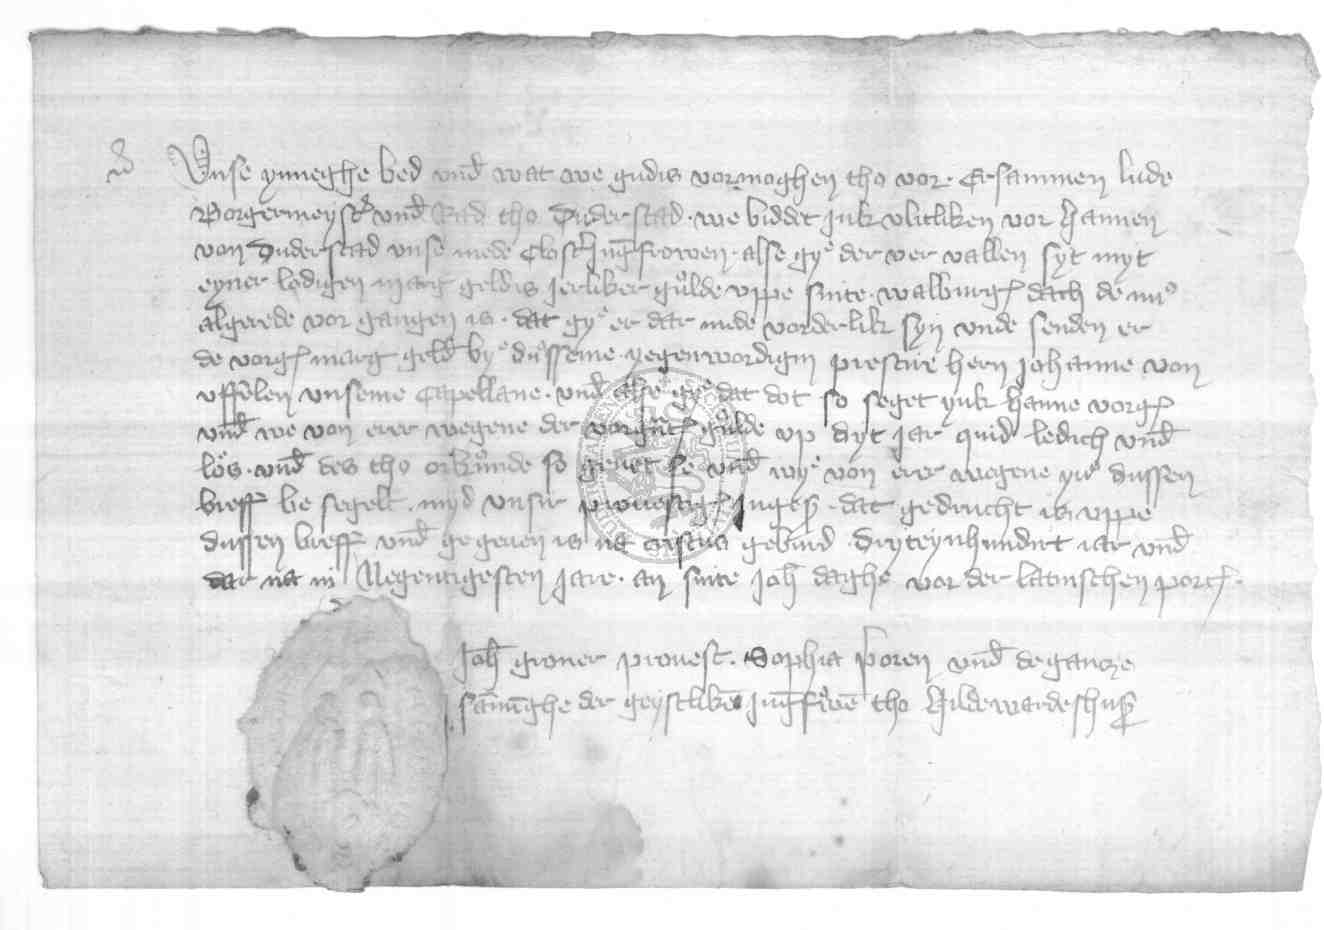 Unse ynneghe bed und wat we gudis vormoghen tho vor. Ersammen lude
Borgermeyster und Rad tho Duderstad. we biddet juk vlitliken vor Hannen
von Duderstad unse mede Closter Jungfrowen. alse gye der vervallen syt myt
eyner lodigen marg geldis jerliker gulde uppe sunte. walburg dach de nu
algerede vor gangen is. dat gye er dar mede vorderlik syn unde senden er
de vorg marg geld bye dusseme. yegenwordigin hern Johanne von
Uffelen unseme Capellane. und gye dat dot so seget yuk Hanne vorg
und we von erer wegene der gulde up dyt jar quid ledich und
los. und des tho orkunde so geuet se und wye von erer wegene yu dussen
breff be segelt. myd unsir Ingeß. dat gedrucht is uppe
dussen breff und gegeuen is na cristus gebурd Dryteynhundirt iar und
dar na in Negentigesten Jare. an sunte Joh daghe vor der latinschen port.
Joh groner prouest. Sophia und de gancze
samninghe der geystliken Jungfrwen tho Hildewardeshuß